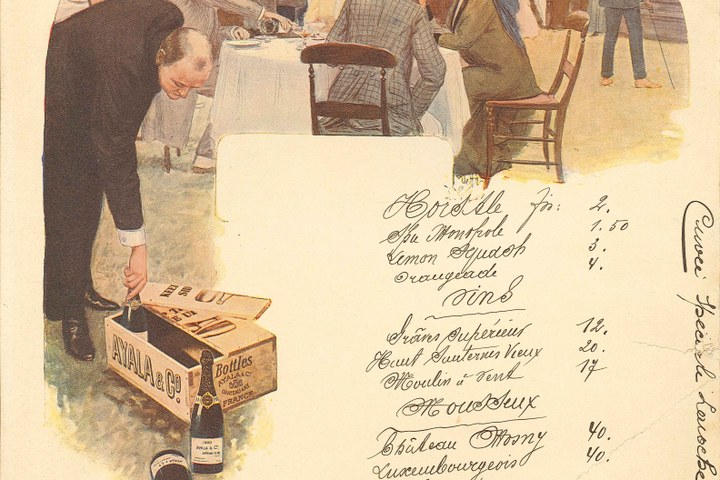 frs: 2.
Spa Monopole 1.50
Lemon Squash 3.
Orangeade 4.
Vins
Grâves Supérieur 12.
Haut Sauternes Vieux 20.
Moulin à Vent 17
Mousseux
Château Mosny 40.
Luxembourgeois 40.
Cuvée Spéciale
AYALA & Co
Bottles
AYALA & Co
FRANCE